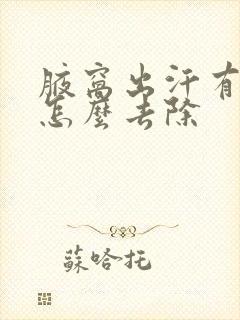 腋窩出汗有
怎麼去除
蘇哈托